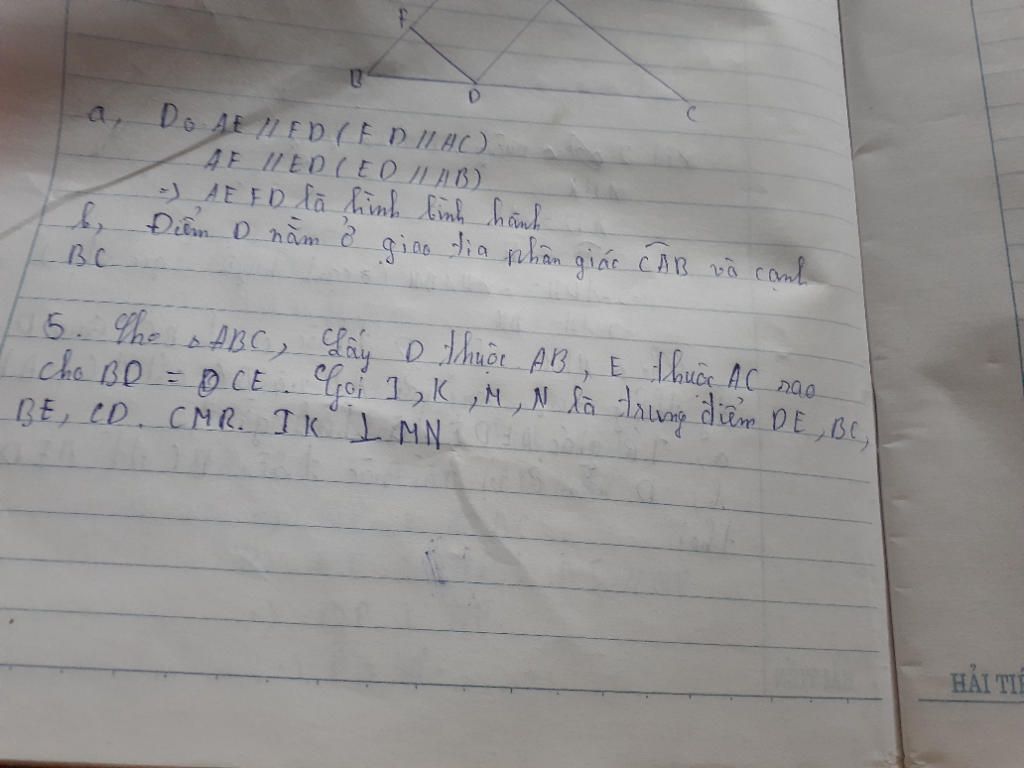 F
B
D
C
a, Do AE // FD ( FD // AC)
AF // ED ( ED // AB)
=> AEFD là hình bình hành
b, Điểm D nằm ở giao tia phân giác CAB và cạnh
BC
5. Cho △ABC, Lấy D thuộc AB, E thuộc AC sao
cho BD = CE. Gọi I, K, M, N là trung điểm DE, BC,
BE, CD. CMR. IK ⊥ MN
HẢI TIẾ